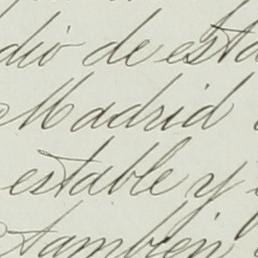 dio de esta
Madrid
estable y
tambien